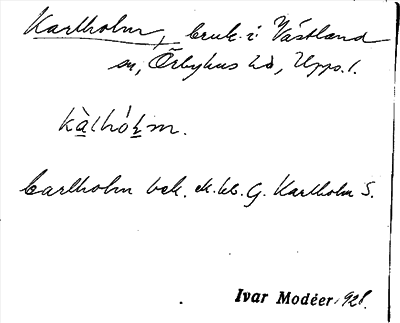 Karlholm, bruk i Västland
sn, Örbyhus hd, Upps. l.
kàlhólm.
Carlholm bek. ek. kb. G. Karlholm S.
Ivar Modéer 1928.